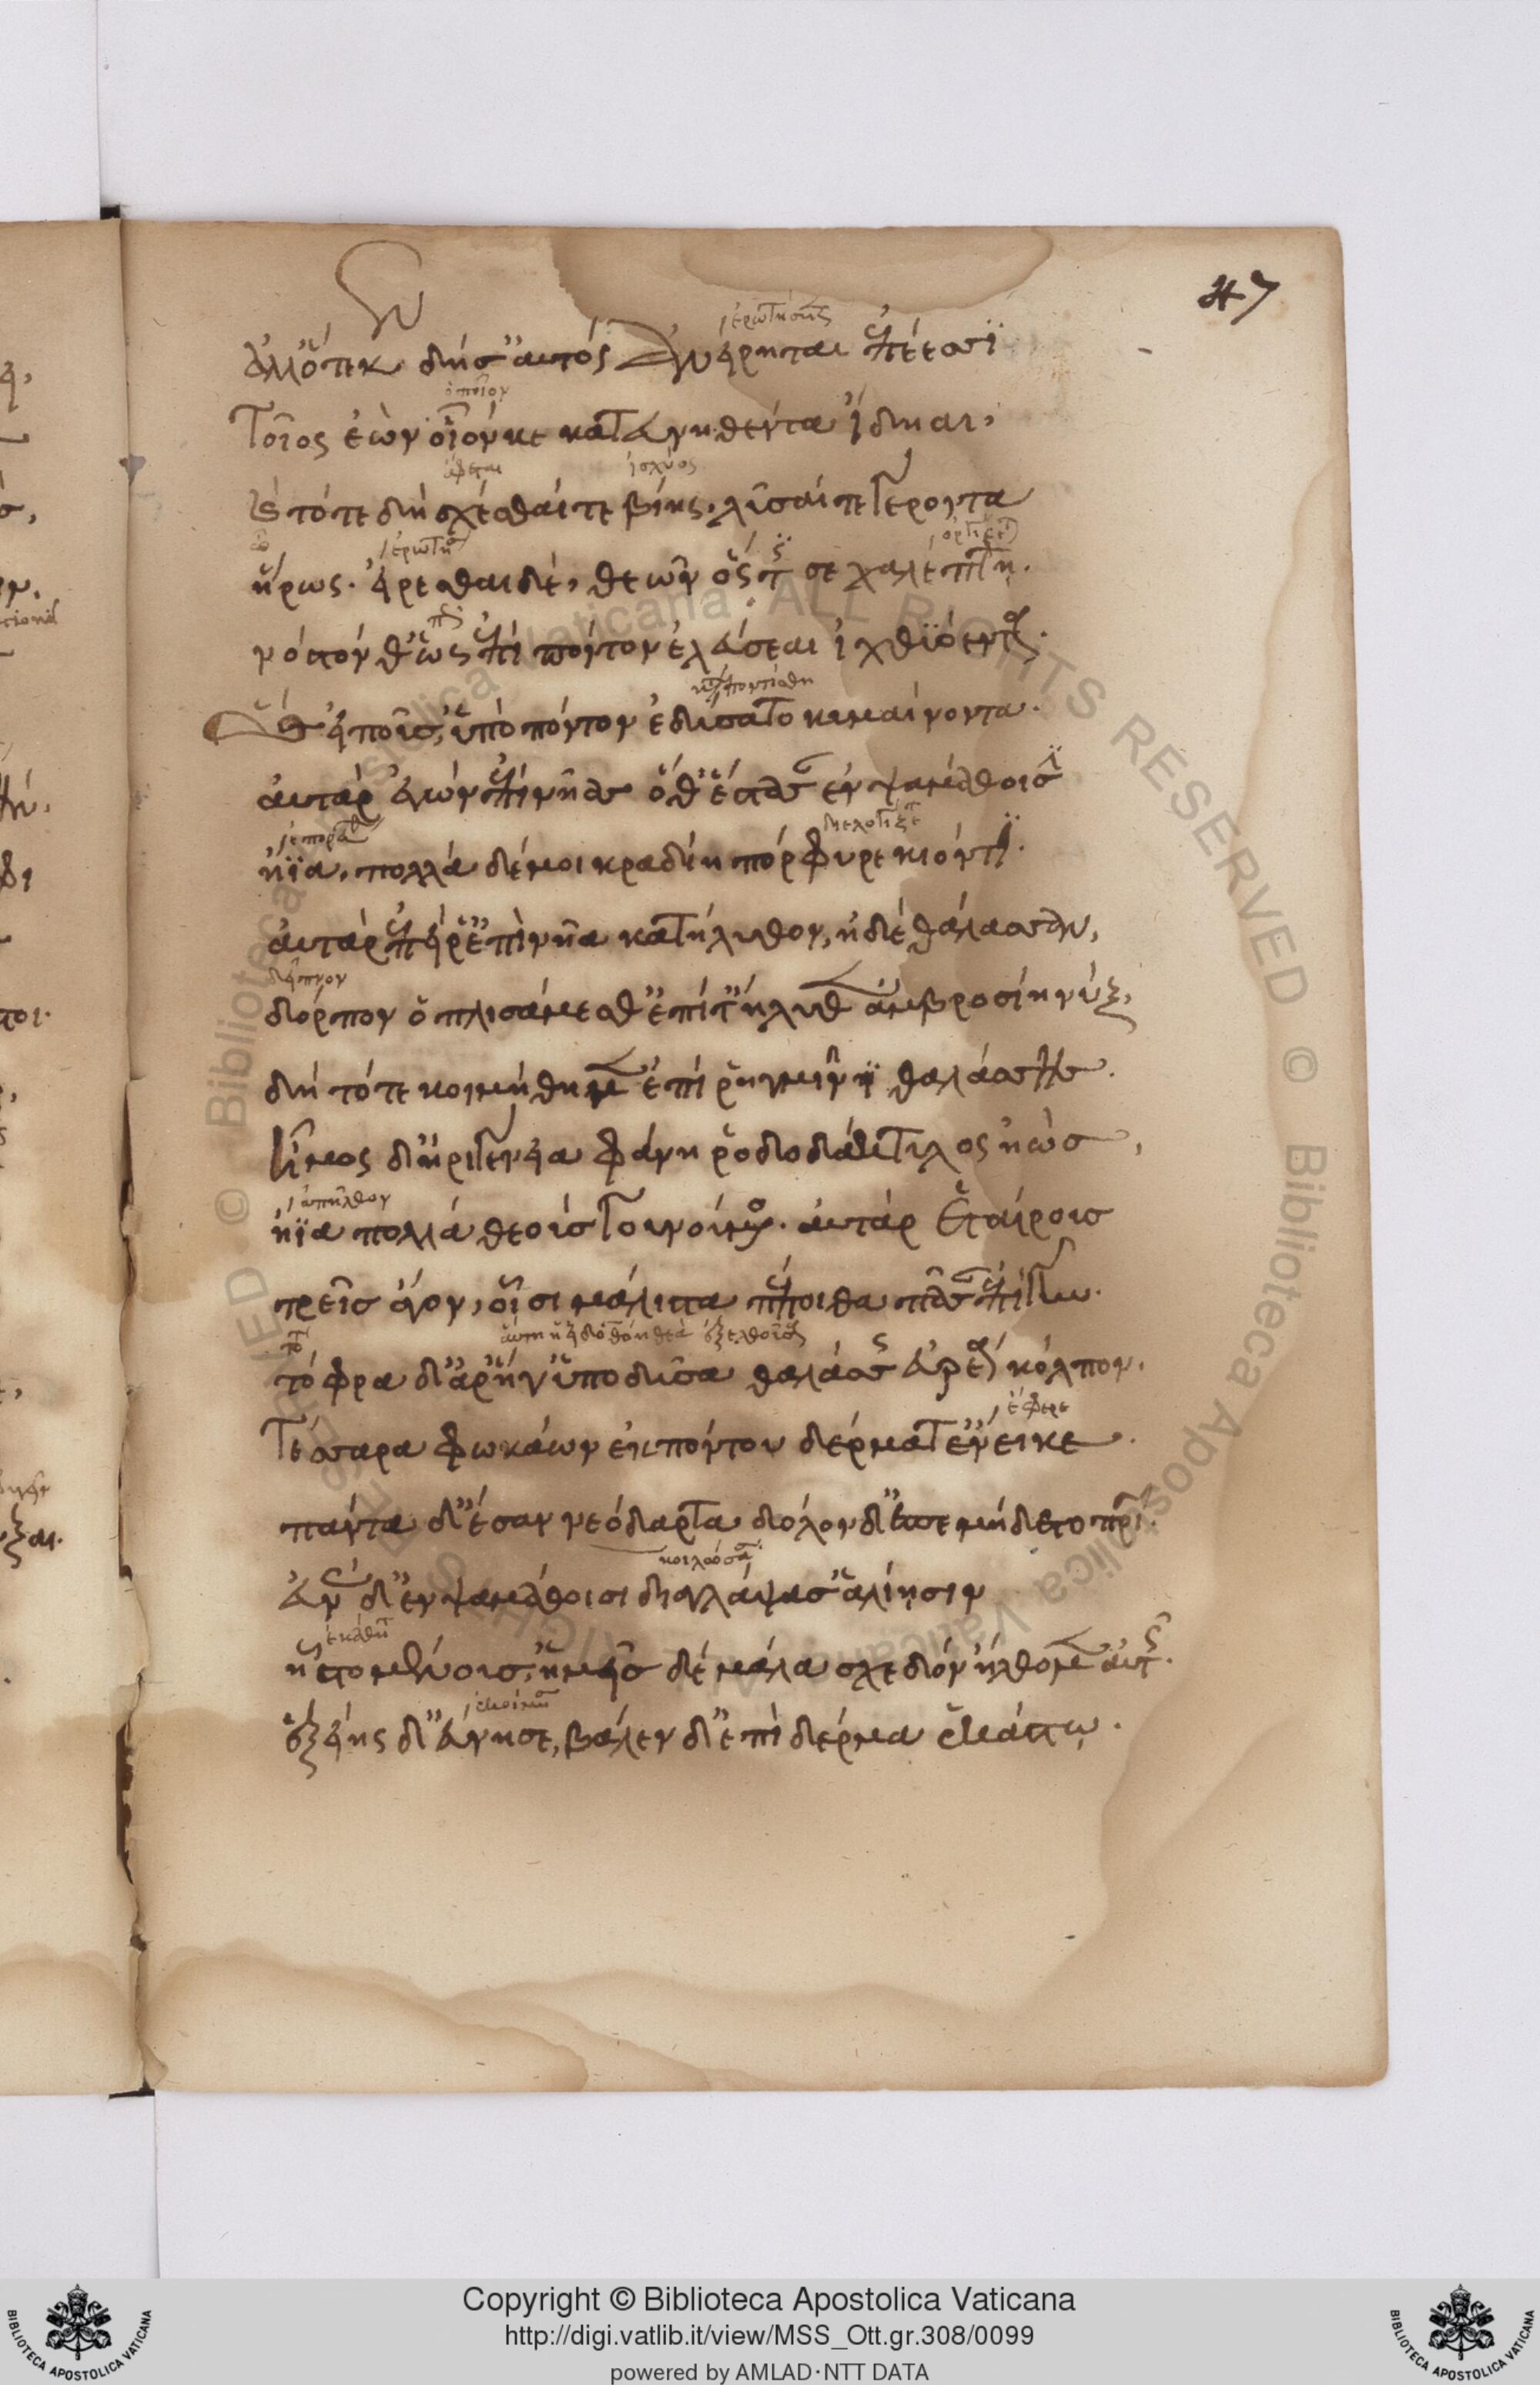 47
ἐρωτήσης
ἀλλ' ὅτε κεν δή σ' αὐτὸς ἀνείρηται ἐπέεσσι
ὁποῖον
τοῖος ἐὼν οἷόν κε κατευνηθέντα ἴδησαι,
ἰσχύος
καὶ τότε δὴ σχέσθαί τε βίης, λῦσαί τε γέροντα
ἥρως· εἴρεσθαι δὲ, θεῶν ὅς τίς σε χαλέπτῃ.
νόστον θ' ὡς ἐπὶ πόντον ἐλεύσεαι ἰχθυόεντα.
ὣς εἰποῦσ' ὑπὸ πόντον ἐδύσατο κυμαίνοντα.
αὐτὰρ ἐγὼν ἐπὶ νῆας ὅθ' ἕστασαν ἐν ψαμάθοισι
ἤϊα, πολλὰ δέ μοι κραδίη πόρφυρε κιόντι.
αὐτὰρ ἐπεί ῥ' ἐπὶ νῆα κατήλυθον, ἠδὲ θάλασσαν,
δεῖπνον
δόρπον θ' ὁπλισάμεσθ' ἐπί τ' ἤλυθεν ἀμβροσίη νύξ,
δὴ τότε κοιμήθημεν ἐπὶ ῥηγμῖνι θαλάσσης.
ἦμος δ' ἠριγένεια φάνη ῥοδοδάκτυλος ἠώς,
ἀπῆλθον
ἤϊα πολλὰ θεοὺς γουνούμενος. αὐτὰρ ἑταίρους
τρεῖς ἄγον, οἷσι μάλιστα πεποίθεα πᾶσαν ἐπ' ἰθύν.
τόφρα δ' ἄρ' ἥγ' ὑποδῦσα θαλάσσης εὐρέα κόλπον,
ἔφερε
τέσσαρα φωκάων ἐκ πόντου δέρματ' ἔνεικε.
πάντα δ' ἔσαν νεόδαρτα δόλον δ' ἐπεμήδετο πατρί.
εὐνὰς δ' ἐν ψαμάθοισι διαγλάψασ' ἁλίῃσιν
ἧστο μένουσ', ἡμεῖς δὲ μάλα σχεδὸν ἤλθομεν αὐτῆς.
ἑξείης δ' εὔνησε, βάλεν δ' ἐπὶ δέρμα ἑκάστῳ.
© Biblioteca Apostolica Vaticana · ALL RIGHTS RESERVED
Copyright © Biblioteca Apostolica Vaticana
http://digi.vatlib.it/view/MSS_Ott.gr.308/0099
powered by AMLAD·NTT DATA
BIBLIOTECA APOSTOLICA VATICANA
BIBLIOTECA APOSTOLICA VATICANA